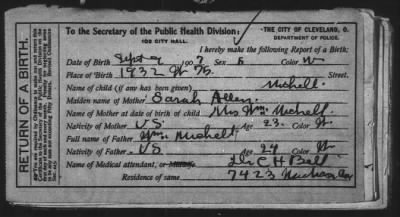 To the Secretary of the Public Health Division: THE CITY OF CLEVELAND, O.
103 CITY HALL. DEPARTMENT OF POLICE.
I hereby make the following Report of a Birth:
Date of Birth Sept 9 1907 Sex Color W
Place of Birth 1932 W 75. Street.
Name of child (if any has been given) Michell.
Maiden name of Mother Sarah Allen.
Name of Mother at date of birth of child Mrs Wm. Michell.
Nativity of Mother U.S. Age 23. Color W.
Full name of Father Wm. Michell.
Nativity of Father U.S Age 29 Color W.
Name of Medical attendant, or Midwife Dr C H Bell
Residence of same 7423
RETURN OF A BIRTH.